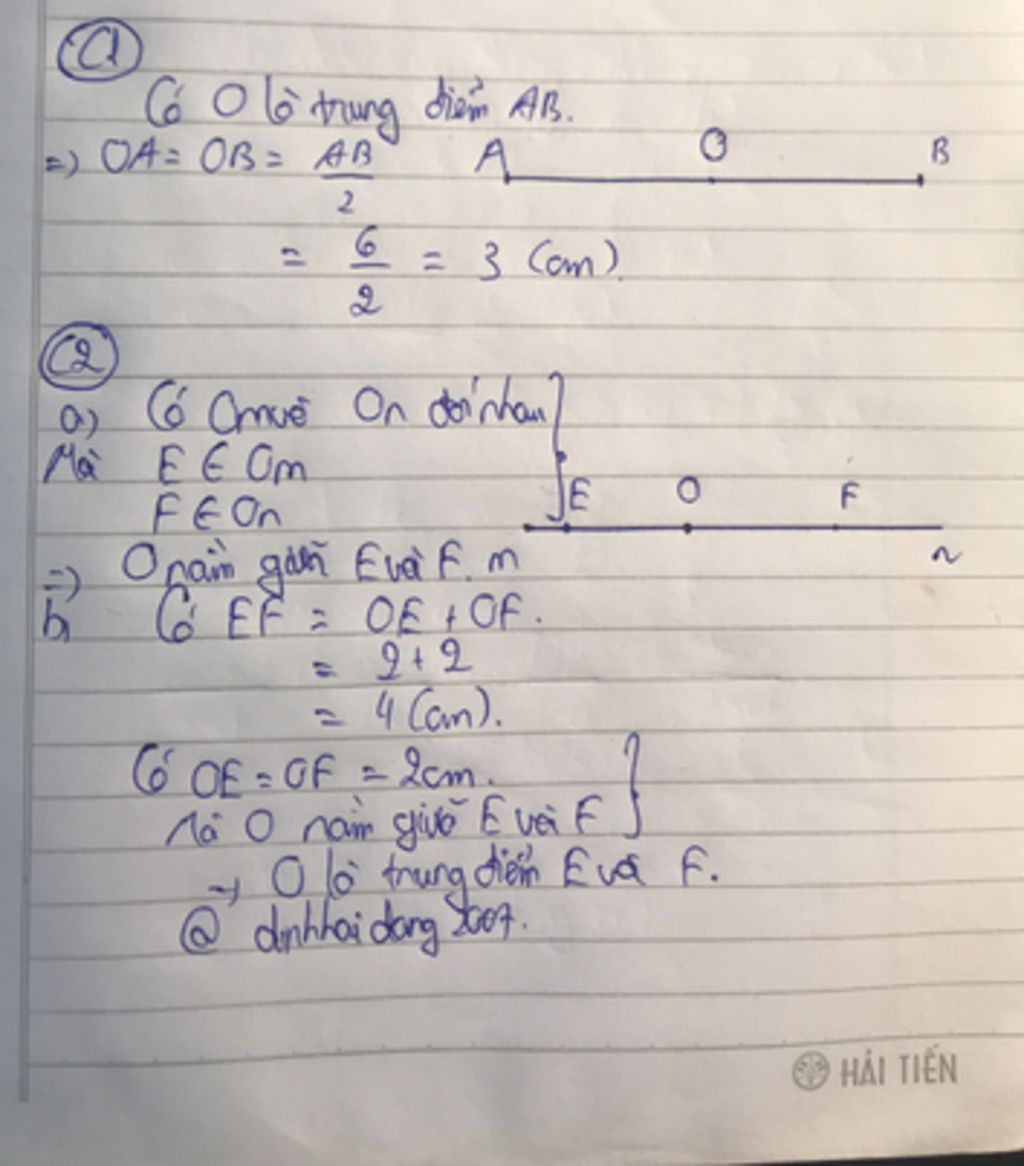 C1
Có O là trung điểm AB.
=) OA = OB = AB/2
A O B
= 6/2 = 3 (cm).
C2
a) Có Om và On đối nhau
Mà E ∈ Om
F ∈ On
E O F
m n
=) O nằm giữa E và F.
b, Có EF = OE + OF.
= 2 + 2
= 4 (cm).
Có OE = OF = 2cm.
Mà O nằm giữa E và F
=) O là trung điểm E và F.
@ dinhhaidang2007.
HẢI TIẾN